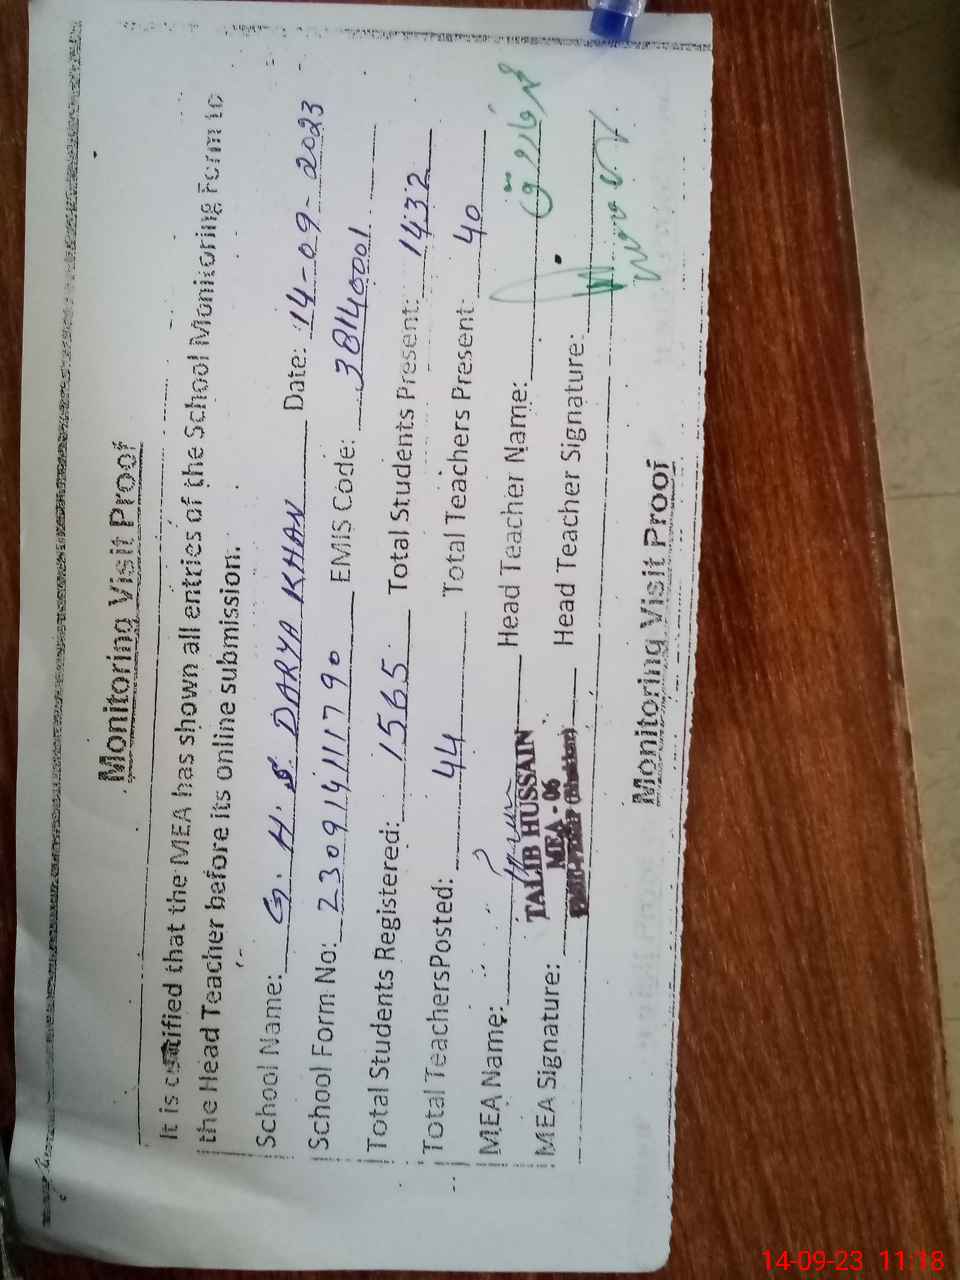 Monitoring Visit Proof
It is certified that the MEA has shown all entries of the School Monitoring Form to
the Head Teacher before its online submission.
School Name: G. H. S DARYA KHAN Date: 14-09-2023
School Form No: 23091411790 EMIS Code: 38140001
Total Students Registered: 1565 Total Students Present: 1432
Total TeachersPosted: 44 Total Teachers Present 40
MEA Name: Head Teacher Name:
TALIB HUSSAIN
MEA - 06
MEA Signature: Head Teacher Signature:
Monitoring Visit Proof
14-09-23 11:18